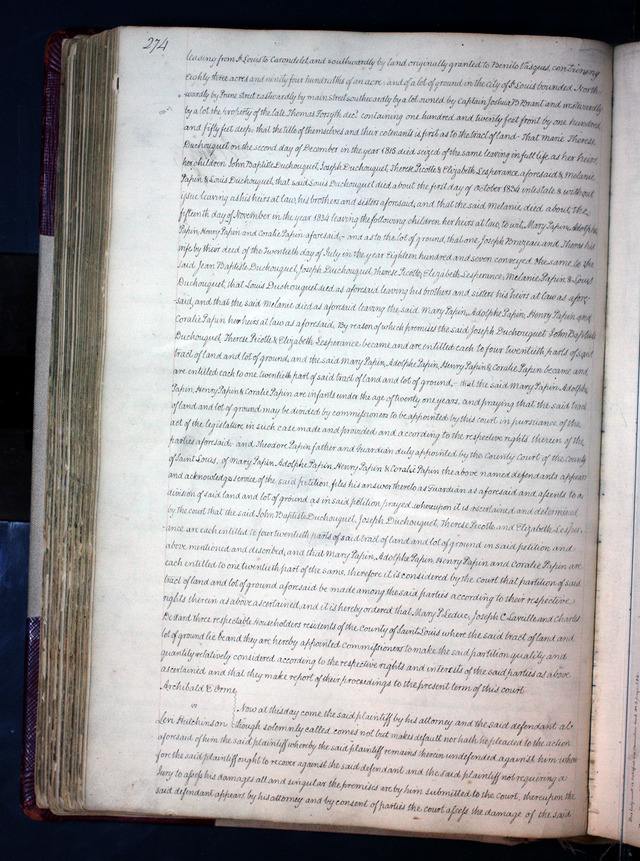 274
leading from St Louis to Carondelet, and southwardly by land originally granted to Benito Vasquez, containing
eighty three acres and ninety four hundredths of an acre, and of a lot of ground in the city of St Louis bounded North
wardly by Prune street eastwardly by main street southwardly by a lot owned by Captain Joshua B Brant and westwardly
by a lot the property of the late Thomas Forsyth decd containing one hundred and twenty feet front by one hundred
and fifty feet deep, that the title of themselves and their cotenants is first as to the tract of land - That Marie Therese
Duchouquet on the second day of December in the year 1815 died seized of the same leaving in full life, as her heirs
her children John Baptiste Duchouquet, Joseph Duchouquet, Therese Picotte & Elizabeth Lesperance aforesaid & Melanie
Papin & Louis Duchouquet, that said Louis Duchouquet died about the first day of October 1834 intestate & without
issue leaving as his heirs at law, his brothers and sisters aforesaid, and that the said Melanie died about the
fifteenth day of November in the year 1834 leaving the following children her heirs at law, to wit, Mary Papin, Adolphe
Papin, Henry Papin and Coralie Papin aforesaid, - and as to the lot of ground, that one Joseph Brazeau and Therese his
wife by their deed of the Twentieth day of July in the year Eighteen hundred and seven conveyed the same to the
said Jean Baptiste Duchouquet, Joseph Duchouquet, Therese Picotte, Elizabeth Lesperance, Melanie Papin & Louis
Duchouquet, that Louis Duchouquet died as aforesaid leaving his brothers and sisters his heirs at law as afore-
said, and that the said Melanie died as aforesaid leaving the said Mary Papin, Adolphe Papin, Henry Papin and
Coralie Papin her heirs at law as aforesaid, By reason of which premises the said Joseph Duchouquet John Baptiste
Duchouquet, Therese Picotte & Elizabeth Lesperance became and are entitled each to four twentieth parts of said
tract of land and lot of ground, and the said Mary Papin, Adolphe Papin, Henry Papin & Coralie Papin became and
are entitled each to one twentieth part of said tract of land and lot of ground, - that the said Mary Papin, Adolphe
Papin, Henry Papin & Coralie Papin are infants under the age of twenty one years, and praying that the said tract
of land and lot of ground may be divided by commissioners to be appointed by this court in pursuance of the
act of the legislature in such case made and provided and according to the respective rights therein of the
parties aforesaid; - and Theodore Papin father and Guardian duly appointed by the County Court of the County
of Saint Louis, of Mary Papin, Adolphe Papin, Henry Papin & Coralie Papin the above named defendants appears
and acknowledges service of the said petition, files his answer thereto as Guardian as aforesaid and assents to a
division of said land and lot of ground as in said petition prayed, whereupon it is ascertained and determined
by the court that the said John Baptiste Duchouquet, Joseph Duchouquet, Therese Picotte and Elizabeth Lesper-
ance are each entitled to four twentieth parts of said tract of land and lot of ground in said petition and
above mentioned and described, and that Mary Papin, Adolphe Papin Henry Papin and Coralie Papin are
each entitled to one twentieth part of the same, therefore it is considered by the court that partition of said
tract of land and lot of ground aforesaid be made among the said parties according to their respective
rights therein as above ascertained, and it is hereby ordered that Mary P. Leduc, Joseph C. Laville and Charles
Bedard three respectable Householders residents of the county of Saint Louis where the said tract of land and
lot of ground lie be and they are hereby appointed Commissioners to make the said partition quality and
quantity relatively considered according to the respective rights and interests of the said parties as above
ascertained and that they make report of their proceedings to the present term of this court
Archibald E Orme
vs
Now at this day come the said plaintiff by his attorney and the said defendant al-
Levi Hutchinson though solemnly called comes not but makes default nor hath he pleaded to the action
aforesaid of him the said plaintiff whereby the said plaintiff remains therein undefended against him where
fore the said plaintiff ought to recover against the said defendant and the said plaintiff not requiring a
Jury to assess his damages all and singular the premises are by him submitted to the court, thereupon the
said defendant appears by his attorney and by consent of parties the court assess the damage of the said